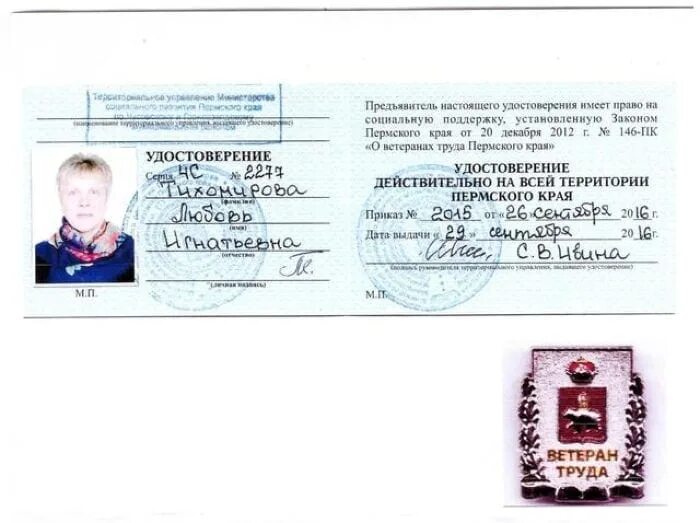 Территориальное управление Министерства
социального развития Пермского края
УДОСТОВЕРЕНИЕ
Серия 4С № 2277
Тихомирова
(фамилия)
Любовь
(имя)
Игнатьевна
(отчество)
(личная подпись)
М.П.
Предъявитель настоящего удостоверения имеет право на
социальную поддержку, установленную Законом
Пермского края от 20 декабря 2012 г. № 146-ПК
«О ветеранах труда Пермского края»
УДОСТОВЕРЕНИЕ
ДЕЙСТВИТЕЛЬНО НА ВСЕЙ ТЕРРИТОРИИ
ПЕРМСКОГО КРАЯ
Приказ № 2015 от «26» сентября 2016г.
Дата выдачи «29» сентября 2016г.
С.В. Ивина
(подпись руководителя территориального управления, выдавшего удостоверение)
М.П.
ВЕТЕРАН
ТРУДА